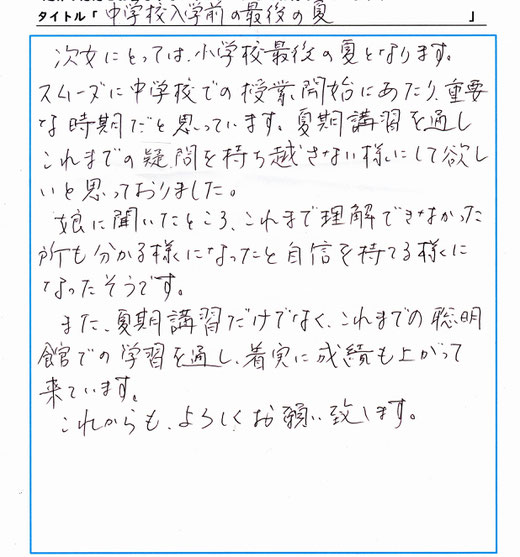 タイトル「中学校入学前の最後の夏」
次女にとっては、小学校最後の夏となります。
スムーズに中学校での授業開始にあたり、重要
な時期だと思っています。夏期講習を通し
これまでの疑問を持ち越さない様にして欲し
いと思っておりました。
娘に聞いたところ、これまで理解できなかった
所も分かる様になったと自信を持てる様に
なったそうです。
また、夏期講習だけでなく、これまでの聡明
館での学習を通し、着実に成績も上がって
来ています。
これからも、よろしくお願い致します。